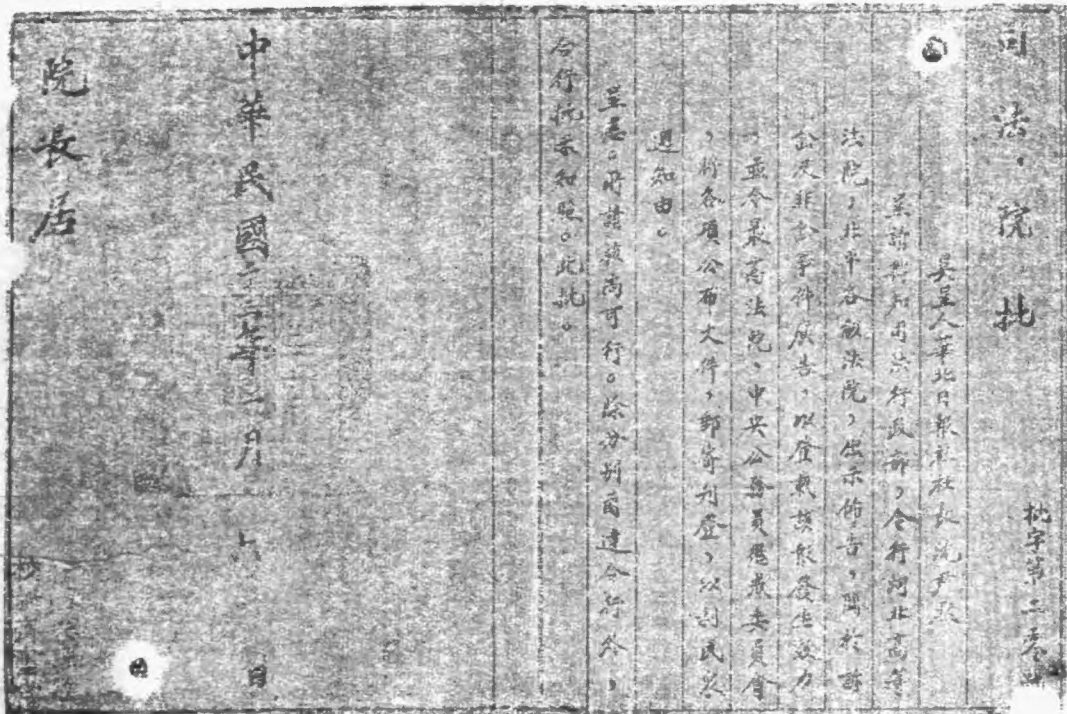 司法院批
批字第二
具呈人華北日報社社長沈尹默
呈請轉知司法行政部，令行河北高等
法院，北平各級法院，出示佈告，關於訴
訟及非訟事件廣告，以登載該報發生效力
，並令最高法院、中央公務員懲戒委員會
，將各項公布文件，郵寄刊登，以利民眾
週知由。
呈悉。所請該尚可行。除分別函達令行外，
合行批示知照。此批。
中華民國二十年二月六日
院長居